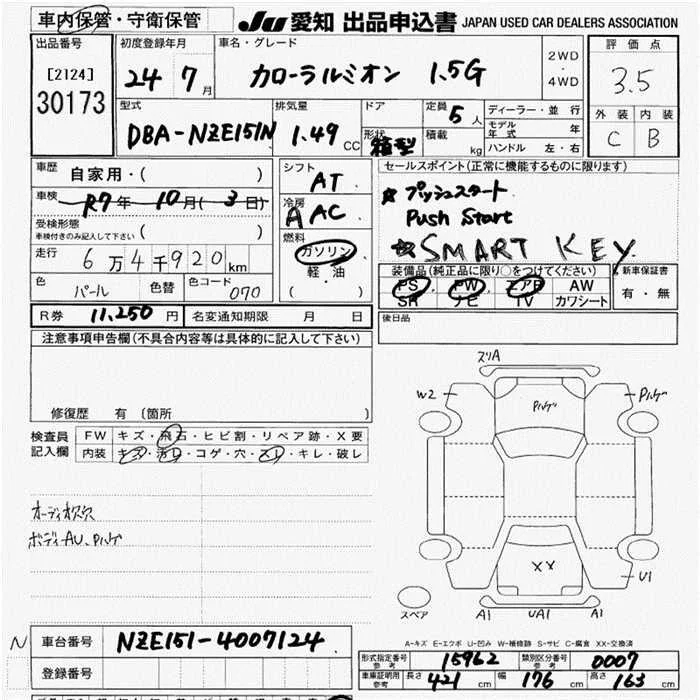 車内保管・守衛保管 JU 愛知 出品申込書 JAPAN USED CAR DEALERS ASSOCIATION
出品番号 [2124] 30173
初度登録年月 24 7月
車名・グレード カローラルミオン 1.5G
2WD・4WD
評価点 3.5
外装 内装
C B
型式 DBA-NZE151N
排気量 1.49 CC
ドア 形状 箱型
定員 5人
積載 kg
ディーラー・並行
モデル年式 年
ハンドル 左・右
車歴 自家用・( )
車検 R7年 10月(3日)
受検形態 ( )
車検付きのみ記入して下さい
走行 6万4千920km
色 パール 色替 色コード 070
シフト AT
冷房 A AC
燃料 ガソリン
軽・油
( )
セールスポイント(正常に機能するものに限ります)
☆プッシュスタート
Push Start
☆SMART KEY.
装備品(純正品に限り○をつけてください)
PS PW エアB AW
SR ナビ TV カワシート
新車保証書
有・無
R券 11,250円 名変通知期限 月 日
後日品
注意事項申告欄(不具合内容等は具体的に記入して下さい)
修復歴 有〔箇所 〕
検査員記入欄
FW キズ・飛石・ヒビ割・リペア跡・X要
内装 キズ・汚レ・コゲ・穴・スレ・キレ・破レ
オーディオ欠穴
ボディーAU、Pハゲ
スリA
W2
Pハゲ
Pハゲ
XX
U1
スペア
A1 UA1 A1
A-キズ E-エクボ U-凹み W-補修跡 S-サビ C-腐食 XX-交換済
N 車台番号 NZE151-4007124
登録番号
形式指定番号 参考 15962 類別区分番号 参考 0007
車庫証明用 参考 長さ 421cm 幅 176cm 高さ 163cm